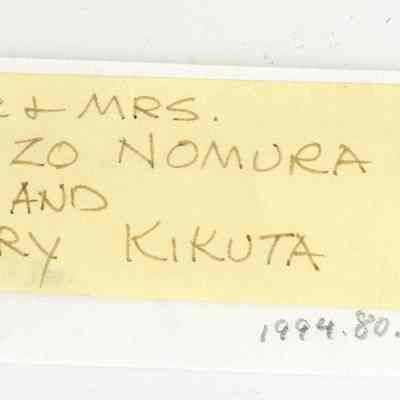 & MRS.
ZO NOMURA
AND
RY KIKUTA
1994.80.